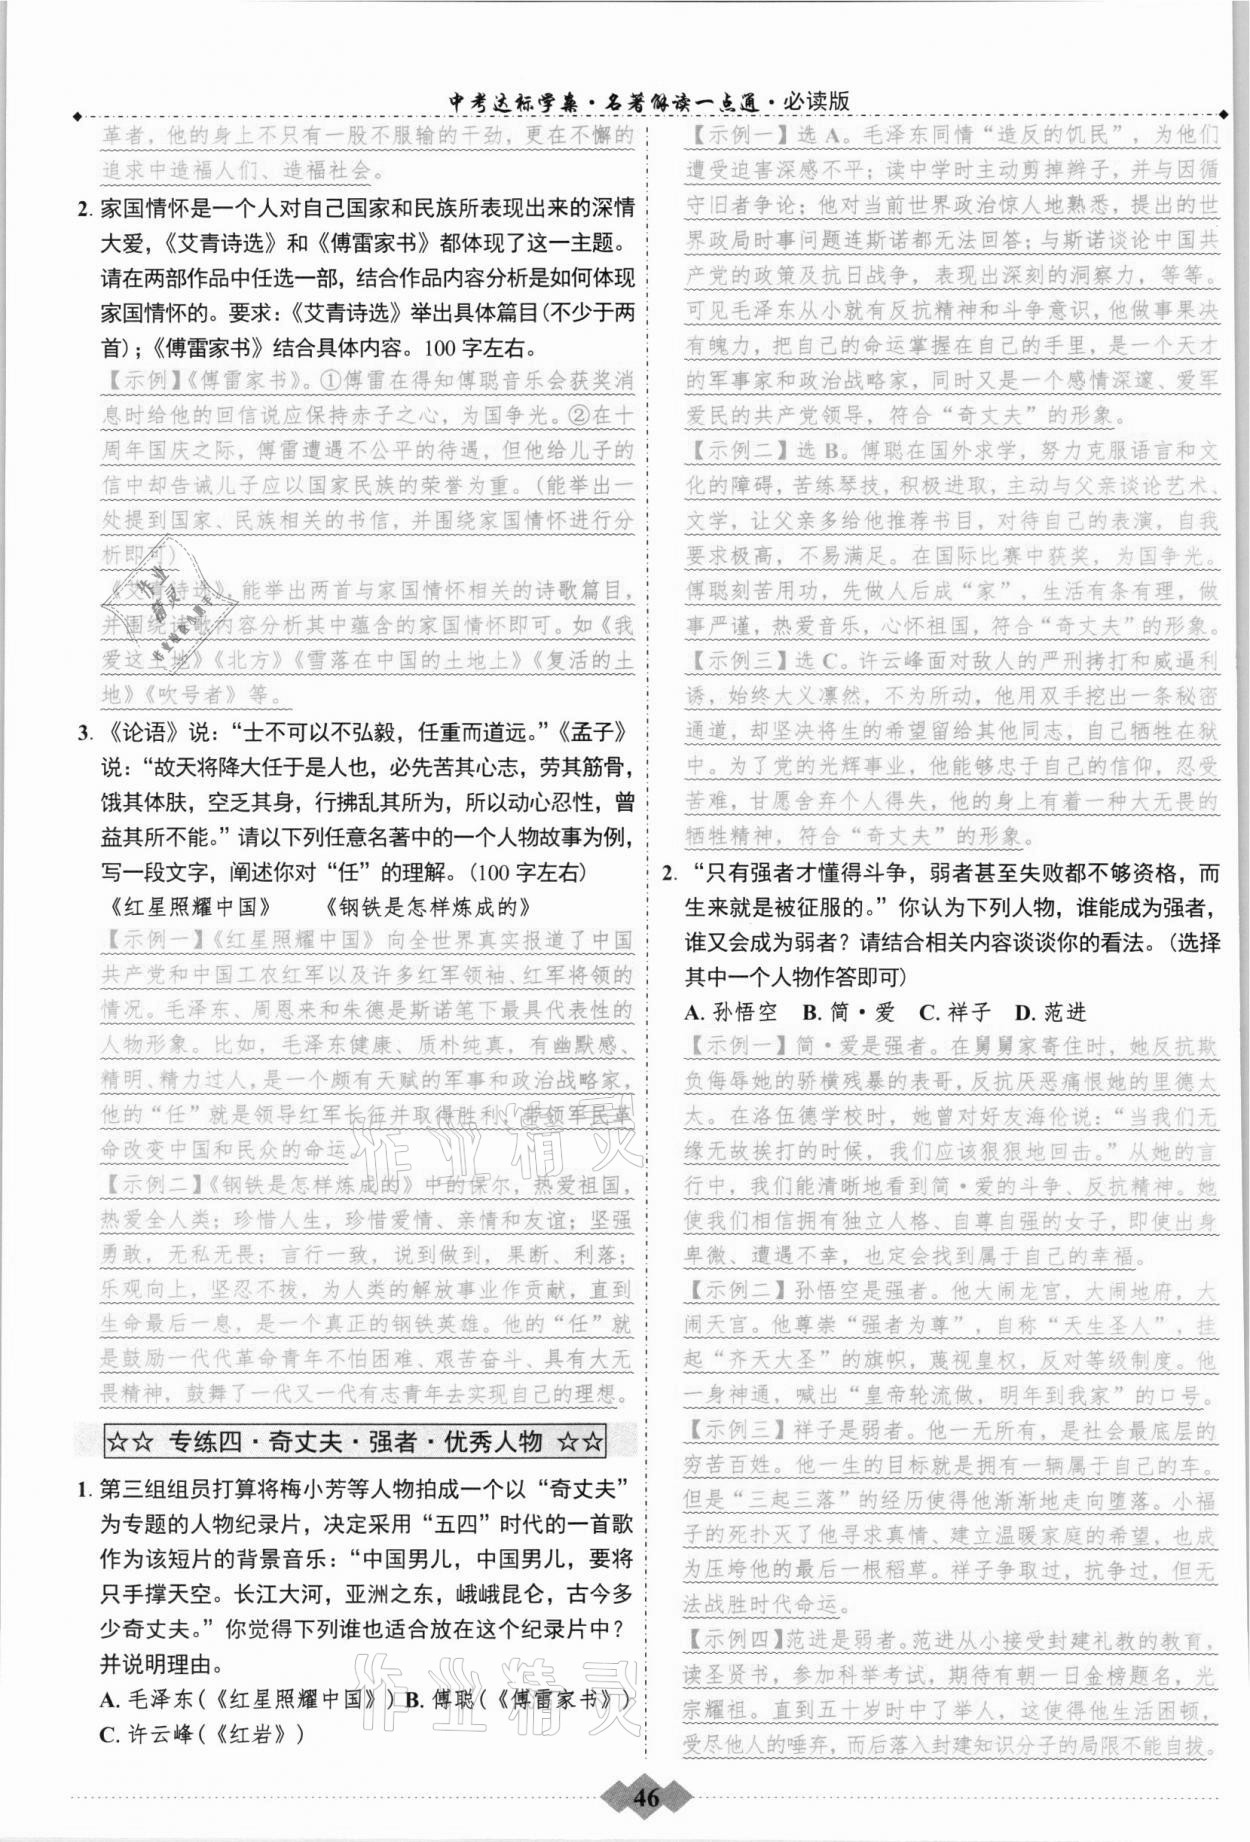 中考达标学案·名著解读一点通·必读版
革者，他的身上不只有一股不服输的干劲，更在不懈的
追求中造福人们、造福社会。
2. 家国情怀是一个人对自己国家和民族所表现出来的深情
大爱，《艾青诗选》和《傅雷家书》都体现了这一主题。
请在两部作品中任选一部，结合作品内容分析是如何体现
家国情怀的。要求：《艾青诗选》举出具体篇目(不少于两
首)；《傅雷家书》结合具体内容。100 字左右。
【示例】《傅雷家书》。①傅雷在得知傅聪音乐会获奖消
息时给他的回信说应保持赤子之心，为国争光。②在十
周年国庆之际，傅雷遭遇不公平的待遇，但他给儿子的
信中却告诫儿子应以国家民族的荣誉为重。(能举出一
处提到国家、民族相关的书信，并围绕家国情怀进行分
析即可)
《艾青诗选》，能举出两首与家国情怀相关的诗歌篇目，
并围绕诗歌内容分析其中蕴含的家国情怀即可。如《我
爱这土地》《北方》《雪落在中国的土地上》《复活的土
地》《吹号者》等。
3. 《论语》说：“士不可以不弘毅，任重而道远。”《孟子》
说：“故天将降大任于是人也，必先苦其心志，劳其筋骨，
饿其体肤，空乏其身，行拂乱其所为，所以动心忍性，曾
益其所不能。”请以下列任意名著中的一个人物故事为例，
写一段文字，阐述你对“任”的理解。(100 字左右)
《红星照耀中国》 《钢铁是怎样炼成的》
【示例一】《红星照耀中国》向全世界真实报道了中国
共产党和中国工农红军以及许多红军领袖、红军将领的
情况。毛泽东、周恩来和朱德是斯诺笔下最具代表性的
人物形象。比如，毛泽东健康、质朴纯真，有幽默感、
精明、精力过人，是一个颇有天赋的军事和政治战略家，
他的“任”就是领导红军长征并取得胜利，带领军民革
命改变中国和民众的命运。
【示例二】《钢铁是怎样炼成的》中的保尔，热爱祖国，
热爱全人类；珍惜人生，珍惜爱情、亲情和友谊；坚强
勇敢，无私无畏；言行一致，说到做到，果断、利落；
乐观向上，坚忍不拔，为人类的解放事业作贡献，直到
生命最后一息，是一个真正的钢铁英雄。他的“任”就
是鼓励一代代革命青年不怕困难、艰苦奋斗、具有大无
畏精神，鼓舞了一代又一代有志青年去实现自己的理想。
☆☆ 专练四·奇丈夫·强者·优秀人物 ☆☆
1. 第三组组员打算将梅小芳等人物拍成一个以“奇丈夫”
为专题的人物纪录片，决定采用“五四”时代的一首歌
作为该短片的背景音乐：“中国男儿，中国男儿，要将
只手撑天空。长江大河，亚洲之东，峨峨昆仑，古今多
少奇丈夫。”你觉得下列谁也适合放在这个纪录片中？
并说明理由。
A. 毛泽东(《红星照耀中国》) B. 傅聪(《傅雷家书》)
C. 许云峰(《红岩》)
【示例一】选 A。毛泽东同情“造反的饥民”，为他们
遭受迫害深感不平；读中学时主动剪掉辫子，并与因循
守旧者争论；他对当前世界政治惊人地熟悉，提出的世
界政局时事问题连斯诺都无法回答；与斯诺谈论中国共
产党的政策及抗日战争，表现出深刻的洞察力，等等。
可见毛泽东从小就有反抗精神和斗争意识，他做事果决
有魄力，把自己的命运掌握在自己的手里，是一个天才
的军事家和政治战略家，同时又是一个感情深邃、爱军
爱民的共产党领导，符合“奇丈夫”的形象。
【示例二】选 B。傅聪在国外求学，努力克服语言和文
化的障碍，苦练琴技，积极进取，主动与父亲谈论艺术、
文学，让父亲多给他推荐书目，对待自己的表演，自我
要求极高，不易满足。在国际比赛中获奖，为国争光。
傅聪刻苦用功，先做人后成“家”，生活有条有理，做
事严谨，热爱音乐，心怀祖国，符合“奇丈夫”的形象。
【示例三】选 C。许云峰面对敌人的严刑拷打和威逼利
诱，始终大义凛然，不为所动，他用双手挖出一条秘密
通道，却坚决将生的希望留给其他同志，自己牺牲在狱
中。为了党的光辉事业，他能够忠于自己的信仰，忍受
苦难，甘愿舍弃个人得失，他的身上有着一种大无畏的
牺牲精神，符合“奇丈夫”的形象。
2. “只有强者才懂得斗争，弱者甚至失败都不够资格，而
生来就是被征服的。”你认为下列人物，谁能成为强者，
谁又会成为弱者？请结合相关内容谈谈你的看法。(选择
其中一个人物作答即可)
A. 孙悟空 B. 简·爱 C. 祥子 D. 范进
【示例一】简·爱是强者。在舅舅家寄住时，她反抗欺
负侮辱她的骄横残暴的表哥，反抗厌恶痛恨她的里德太
太。在洛伍德学校时，她曾对好友海伦说：“当我们无
缘无故挨打的时候，我们应该狠狠地回击。”从她的言
行中，我们能清晰地看到简·爱的斗争、反抗精神。她
使我们相信拥有独立人格、自尊自强的女子，即使出身
卑微、遭遇不幸，也定会找到属于自己的幸福。
【示例二】孙悟空是强者。他大闹龙宫，大闹地府，大
闹天宫。他尊崇“强者为尊”，自称“天生圣人”，挂
起“齐天大圣”的旗帜，蔑视皇权，反对等级制度。他
一身神通，喊出“皇帝轮流做，明年到我家”的口号。
【示例三】祥子是弱者。他一无所有，是社会最底层的
穷苦百姓。他一生的目标就是拥有一辆属于自己的车。
但是“三起三落”的经历使得他渐渐地走向堕落。小福
子的死扑灭了他寻求真情、建立温暖家庭的希望，也成
为压垮他的最后一根稻草。祥子争取过，抗争过，但无
法战胜时代命运。
【示例四】范进是弱者。范进从小接受封建礼教的教育，
读圣贤书，参加科举考试，期待有朝一日金榜题名，光
宗耀祖。直到五十岁时中了举人，这使得他生活困顿，
受尽他人的唾弃，而后落入封建知识分子的局限不能自拔。
46
作业精灵
作业精灵
作业精灵